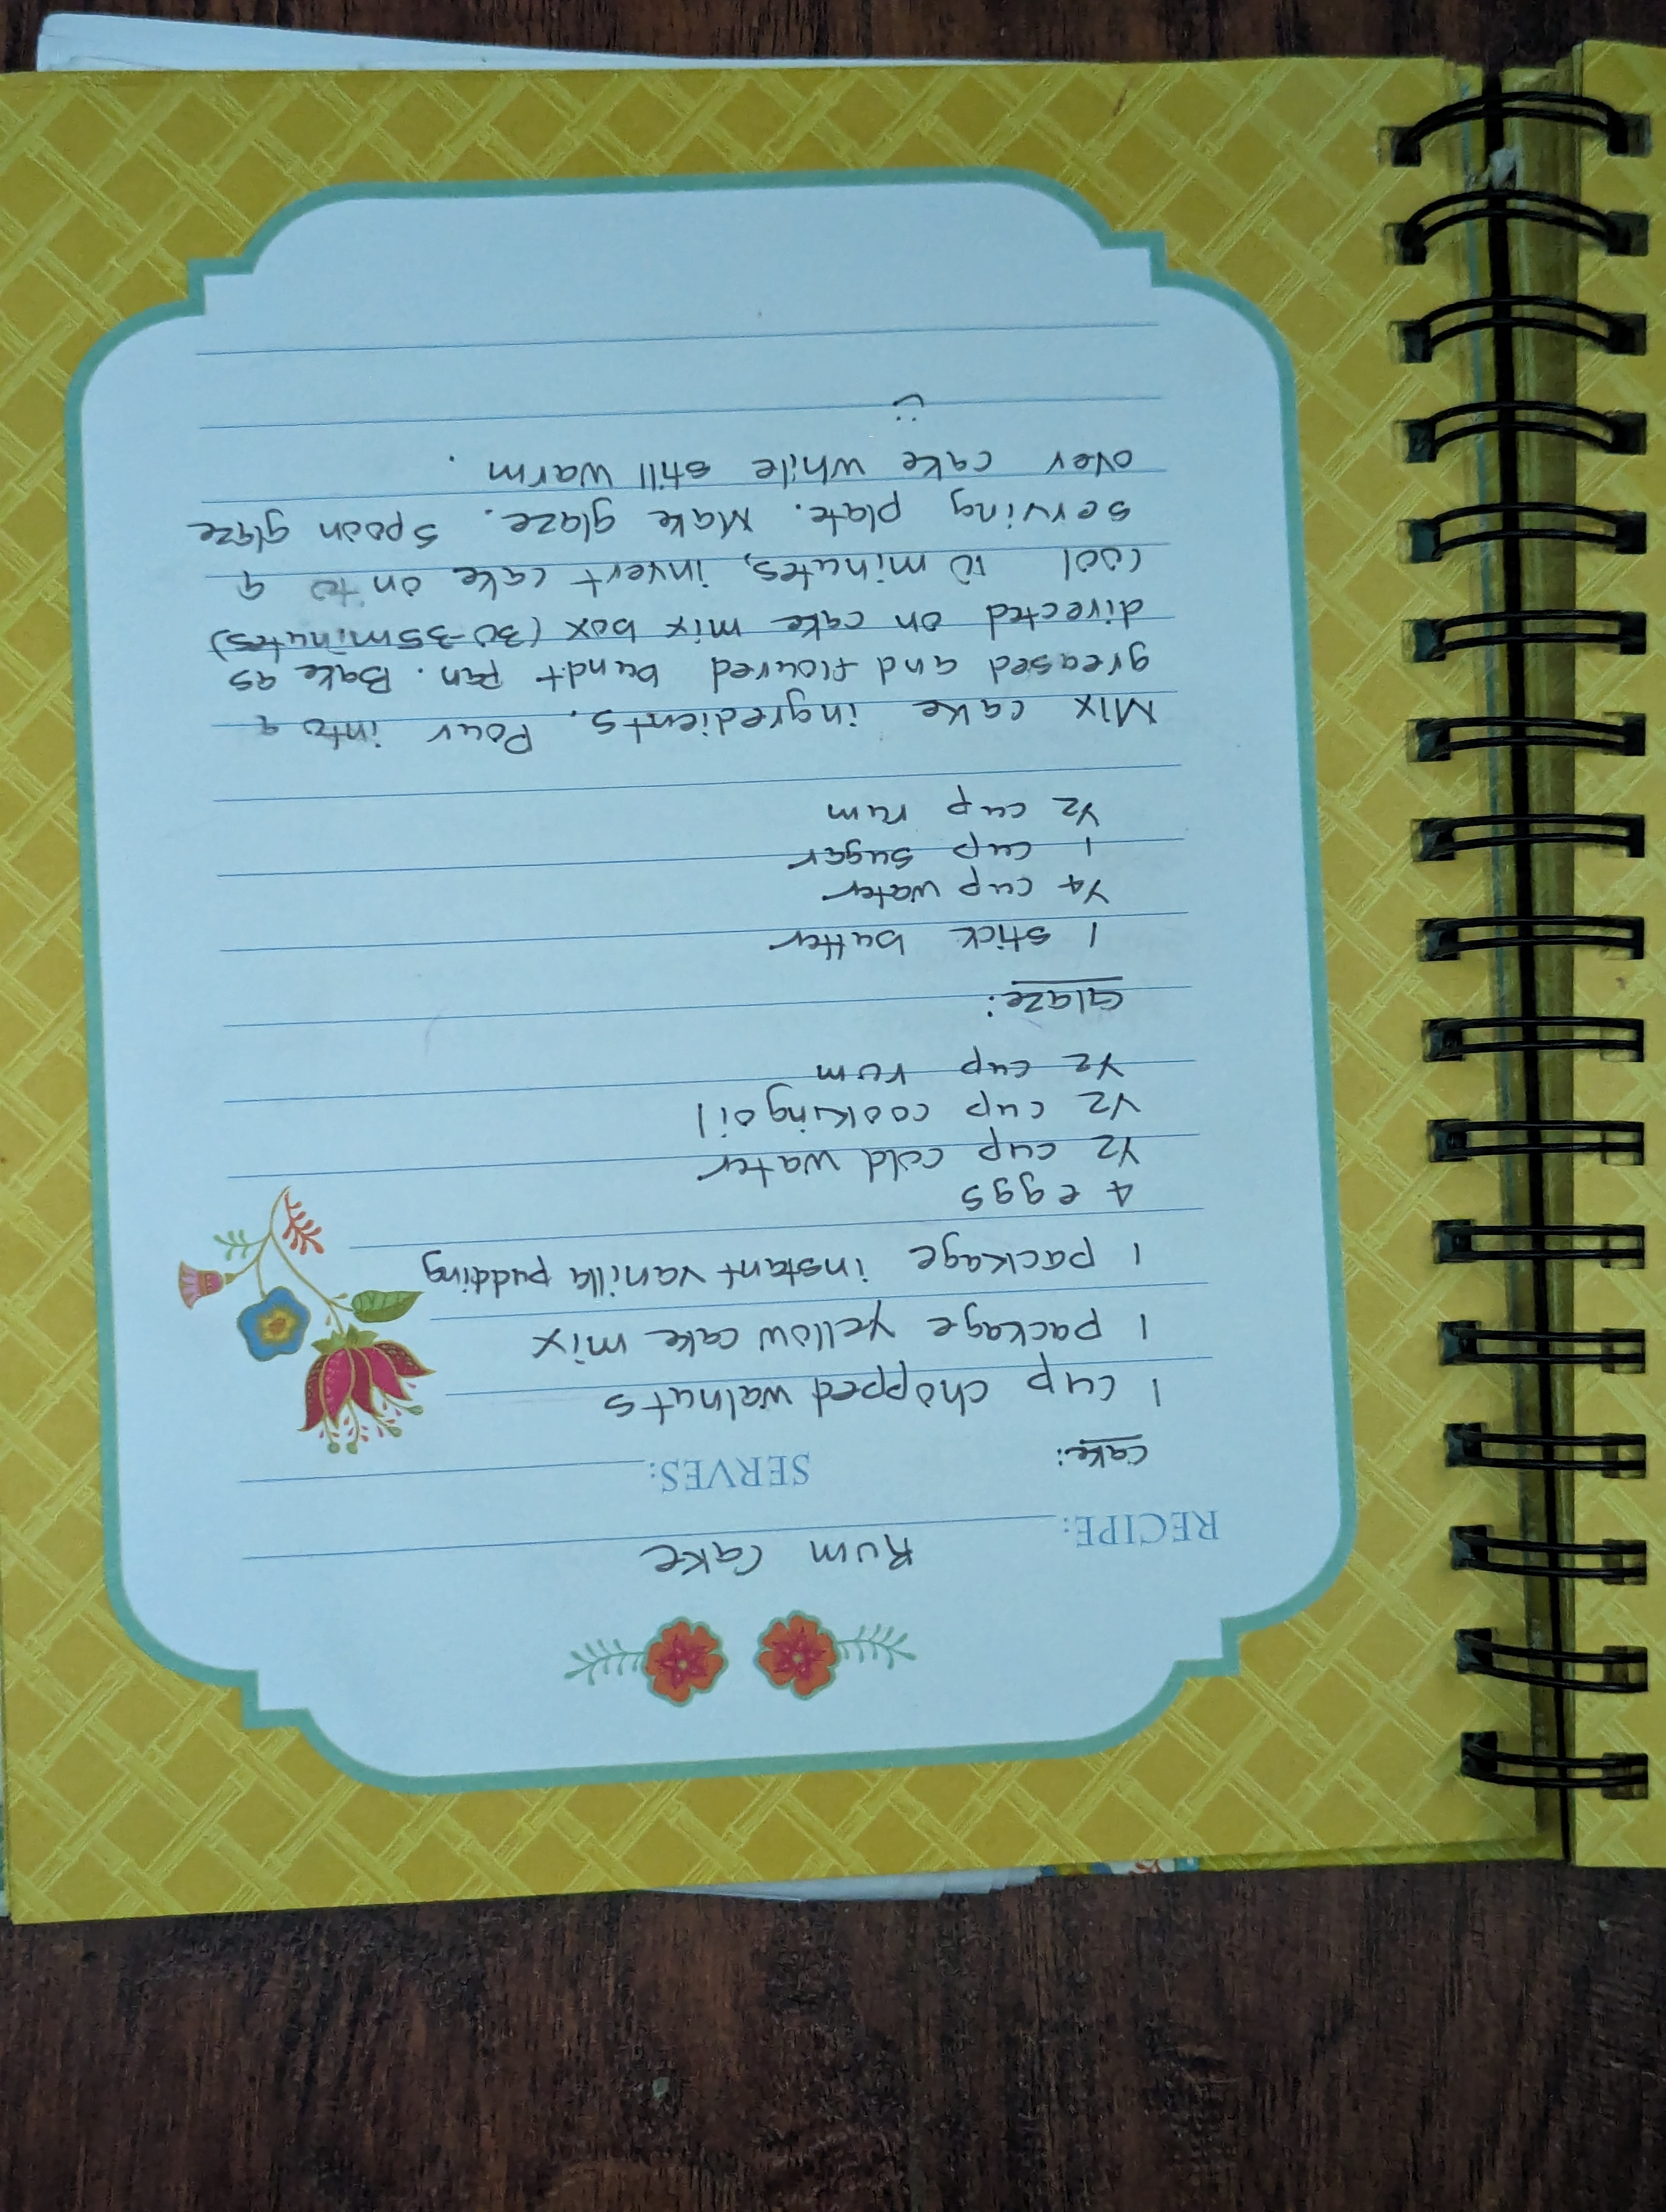 RECIPE: Rum Cake
Cake: SERVES:
1 cup chopped walnuts
1 package yellow cake mix
1 package instant vanilla pudding
4 eggs
1/2 cup cold water
1/2 cup cooking oil
1/2 cup rum
Glaze:
1 stick butter
1/4 cup water
1 cup sugar
1/2 cup rum
Mix cake ingredients. Pour into a
greased and floured bundt pan. Bake as
directed on cake mix box (30-35 minutes)
Cool 10 minutes, invert cake onto a
serving plate. Make glaze. Spoon glaze
over cake while still warm.